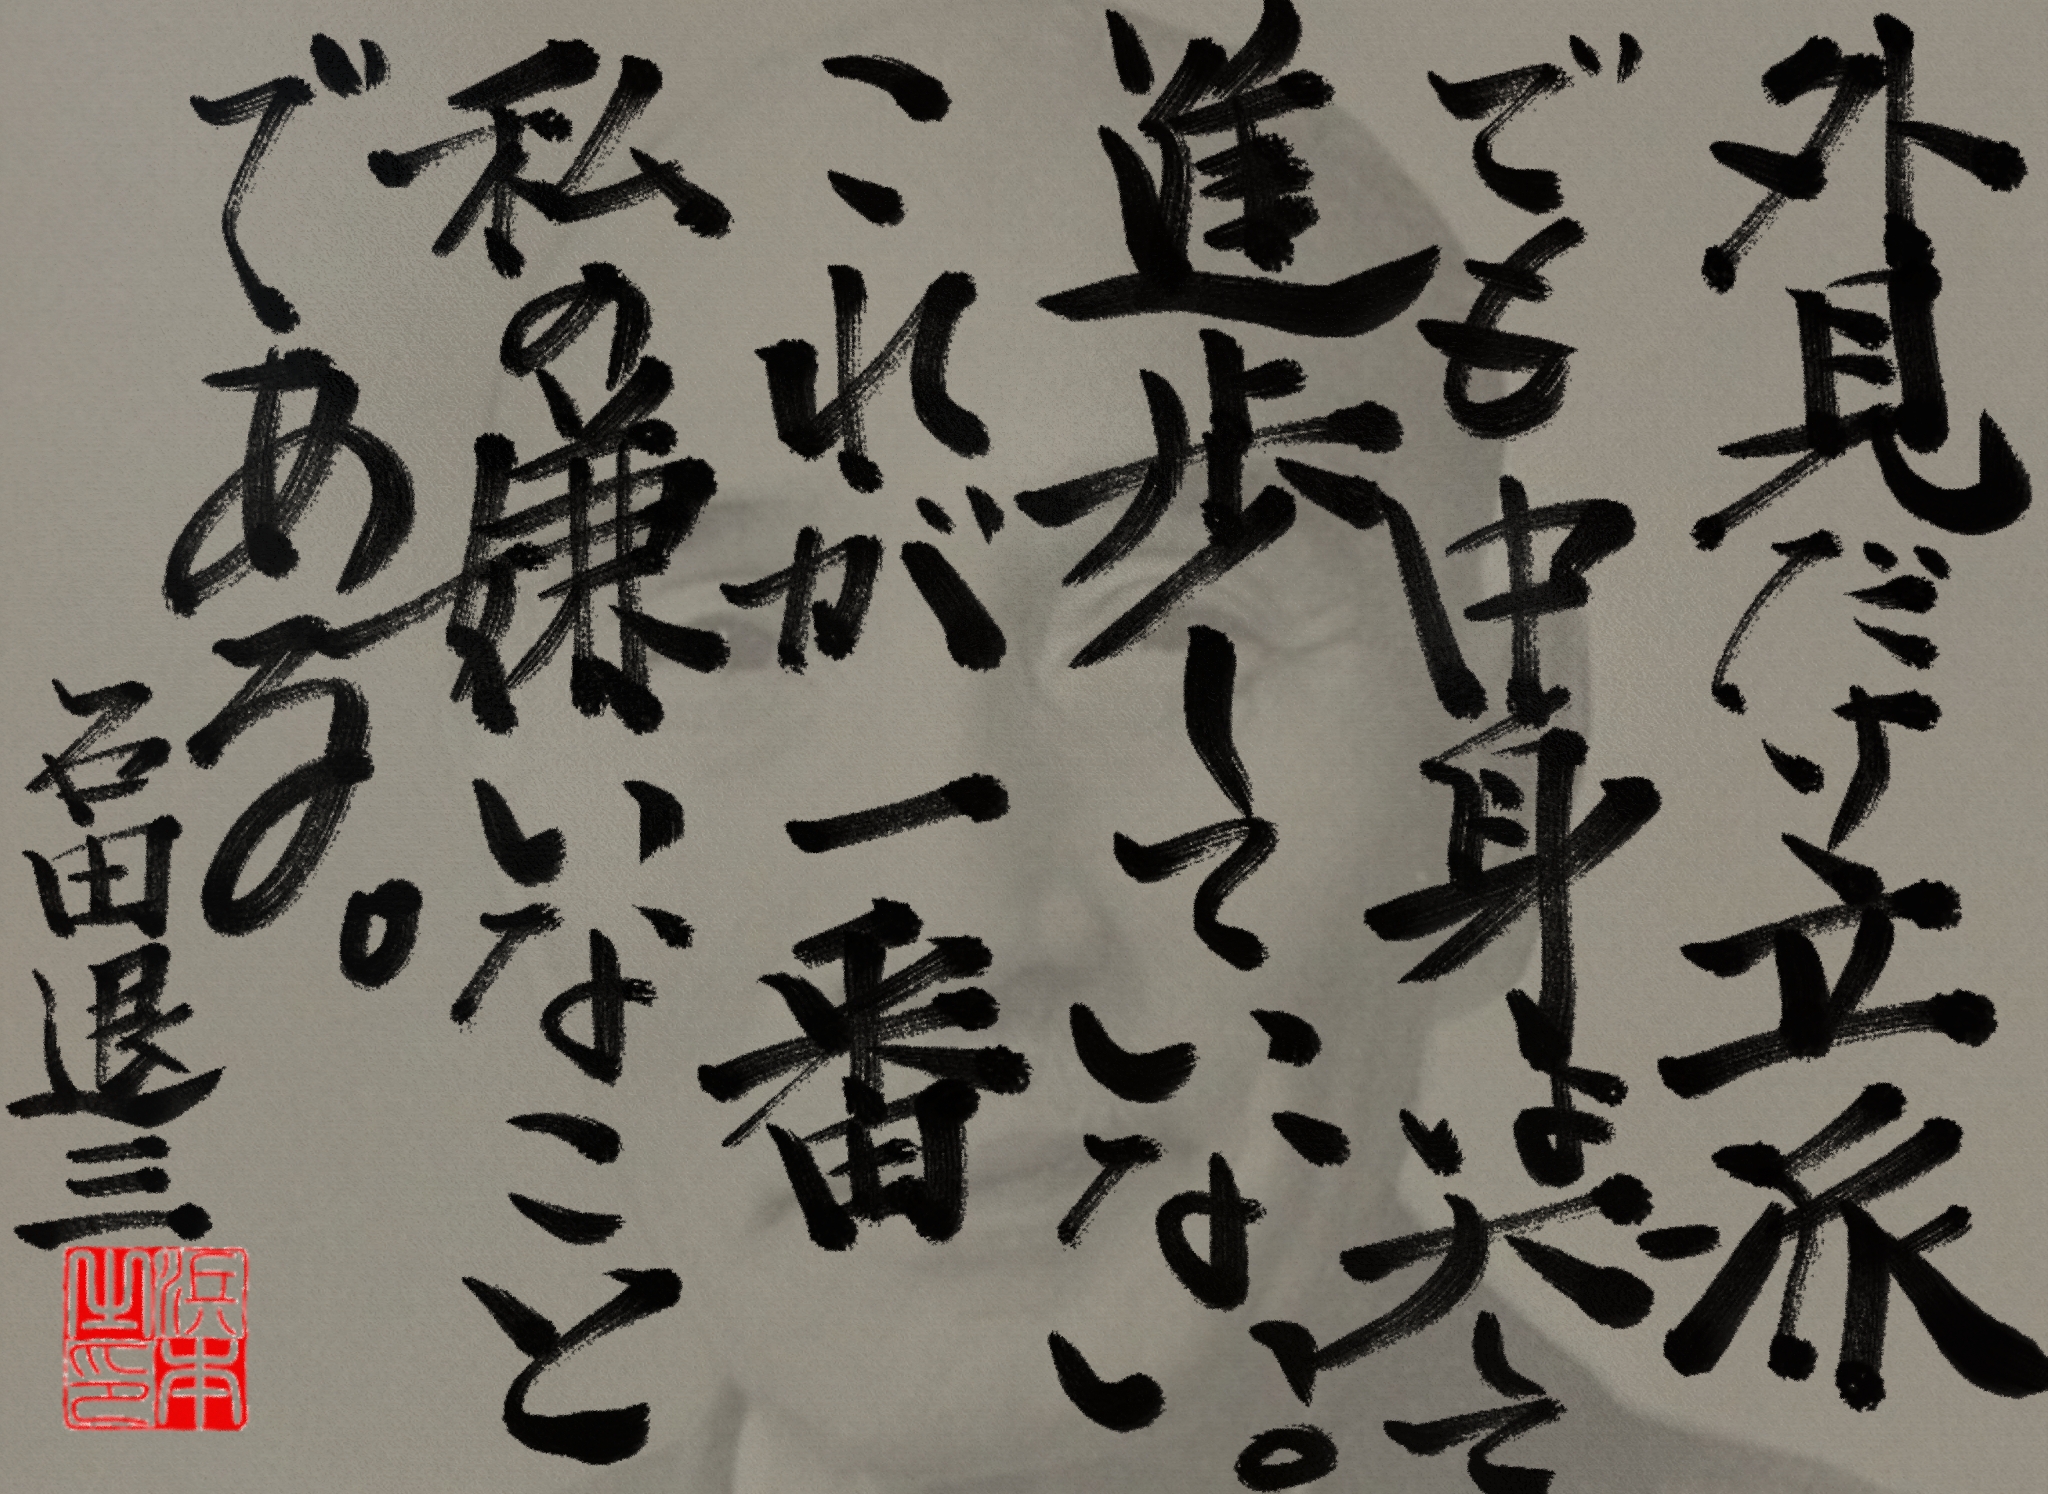 外見だけ立派
でも中身は大して
進歩していない。
これが一番
私の嫌いなこと
である。
石田退三
浜本之印